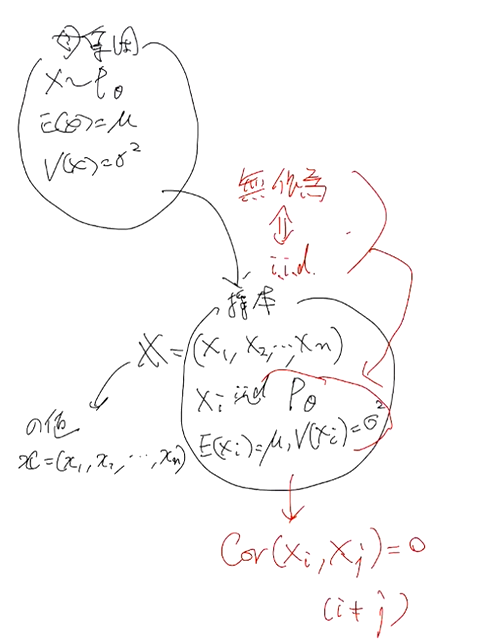 母集団
X~P_θ
E(X)=μ
V(X)=σ²
無作為
⇕
i.i.d.
標本
𝕏=(X₁,X₂,…,Xn)
Xi iid P_θ
E(Xi)=μ,V(Xi)=σ²
の値
𝕩=(x₁,x₂,…,xn)
Cov(Xi,Xj)=0
(i≠j)